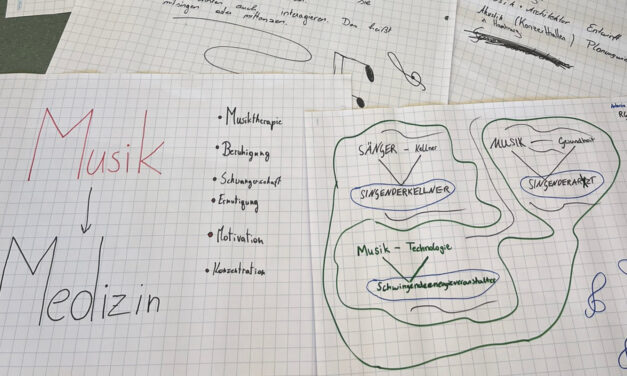 sie
auch interagieren. Das heißt
mitsingen oder mittanzen.
Architektur Entwurf
Akustik (Konzerthallen) Planung
Hamburg
Musik
Medizin
• Musiktherapie
• Beruhigung
• Schwangerschaft
• Ermutigung
• Motivation
• Konzentration
SÄNGER – Kellner
SINGENDERKELLNER
MUSIK — Gesundheit
SINGENDERARZT
Musik – Technologie
Schwingendeenergieveranstalter